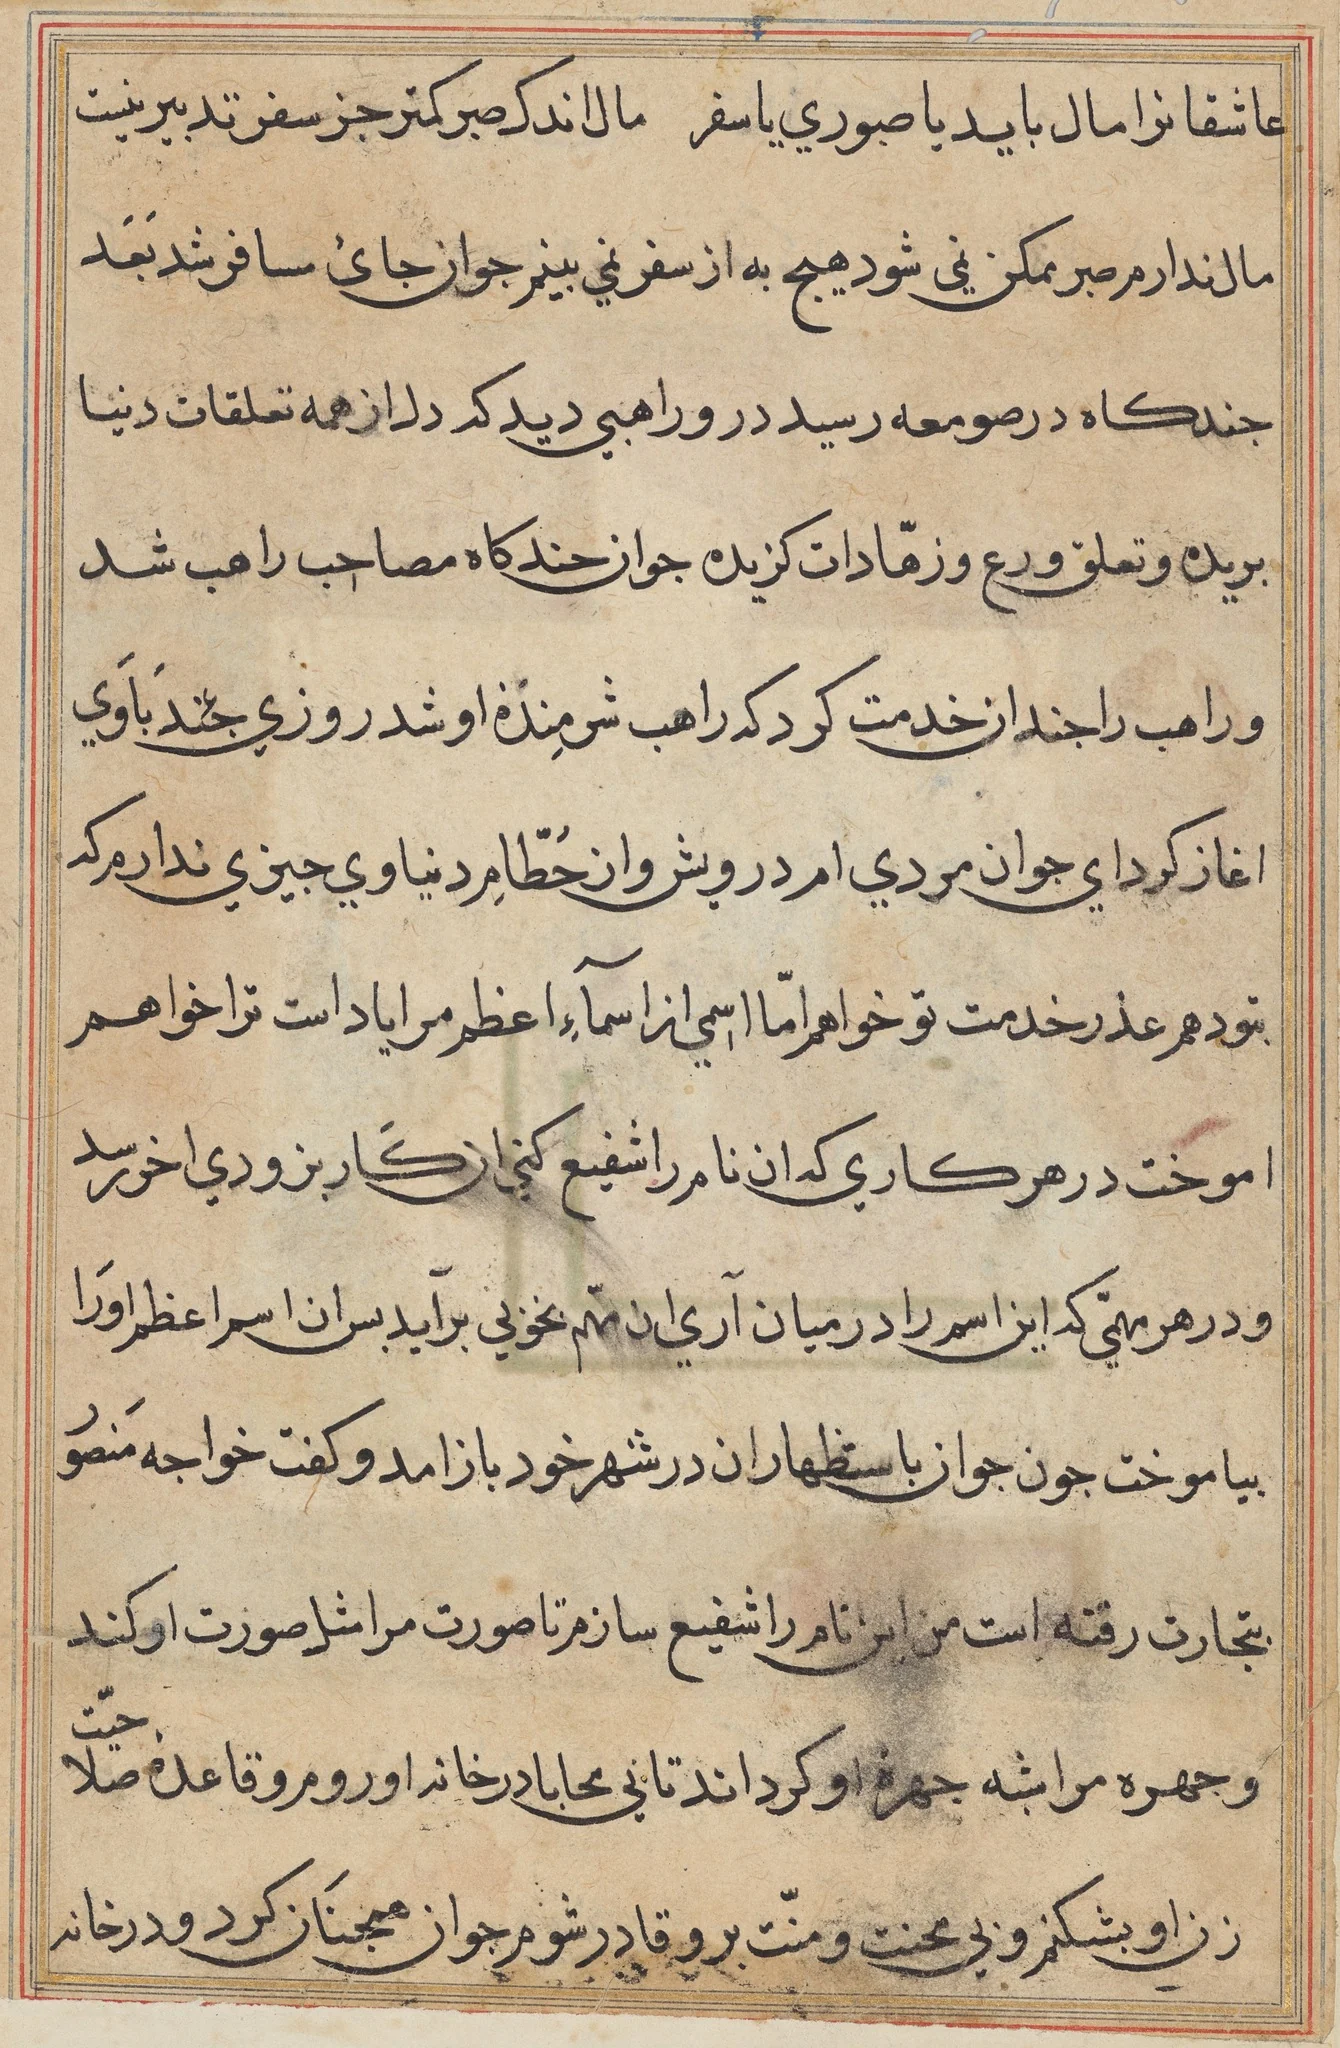 عاشقانرا مال باید یا صبوري یا سفر مال اندک صبر کمتر جز سفر تدبیر نیست
مال ندارم صبر ممکن نمي شود هیچ به از سفر نمي بینم جوان جائ مسافر شد بَعَد
جندکاه در صومعه رسید درو راهبي دید که دل از همه تعلقات دنیا
بریده و تعلق ورع و زهّادات کزیده جوان جندکاه مصاحب راهب شد
و راهب را جندان خدمت کرد که راهب شرمِندَهٔ او شد روزي جند بَاوَي
اغاز کرد اي جوان مردي ام درویش و از حُطّامِ دنیاوي جیزي ندارم که
بتو دهم عذر خدمت تو خواهم امّا اسمِي از اسمآءِ اعظم مرا یاد است ترا خواهم
اموخت در هر کاري که ان نام را شفیع کني ان کَار بزودي اخر رسد
و در هر مهمّي که این اسم را در میان آري ان مهّم بخوبي برآید بس ان اسم اعظم اورَا
بیاموخت جون جوان باستظهار ان در شهر خود باز امد و کفت خواجه مَنصُور
بتجارت رفته است من این نام را شفیع سازم تا صورت مرا مثل صورت او کند
و جهره مرا بشبه جهرهٔ او کرداند تا بي محابا در خانه او روم و قاعدهٔ صلاحیّت
زن او بشکنم و بي محنت و منّت برو قادر شوم جوان همجنَان کرد و در خانه